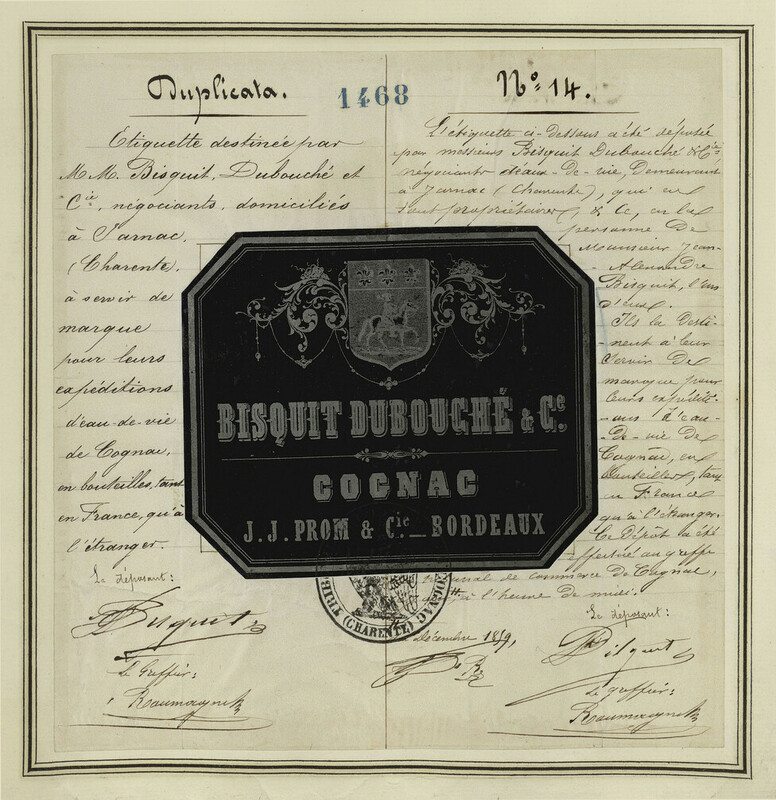 Duplicata.
1468
Nº 14.
Etiquette destinée par
M.M. Bisquit, Dubouché et
Cie, négociants, domiciliés
à Jarnac,
(Charente,
à servir de
marque
pour leurs
expéditions
d'eau-de-vie
de Cognac,
en bouteilles, tant
en France, qu'à
l'étranger.
Le déposant:
Bisquit
Le Greffier:
L'étiquette ci-dessous a été déposée
par messieurs Bisquit Dubouché & Cie
négociants d'eaux-de-vie, Demeurant
à Jarnac (Charente), qui en
sont propriétaires, & ce, en la
personne De
Monsieur Jean-
-Alexandre
Bisquit, l'un
d'eux.
Ils la Desti-
-nent à leur
Servir De
marque pour
leurs expédit-
-ions d'eau-
-De-vie De
Cognac, en
Bouteilles, tant
en France
qu'à l'étranger.
Ce Dépôt a été
effectué au greffe
tribunal de commerce de Cognac,
à l'heure de midi.
Décembre 1859,
Le déposant:
Bisquit
Le greffier:
BISQUIT DUBOUCHÉ & Co.
COGNAC
J.J. PROM & Cie_BORDEAUX
TRIB COGNAC (CHARENTE)